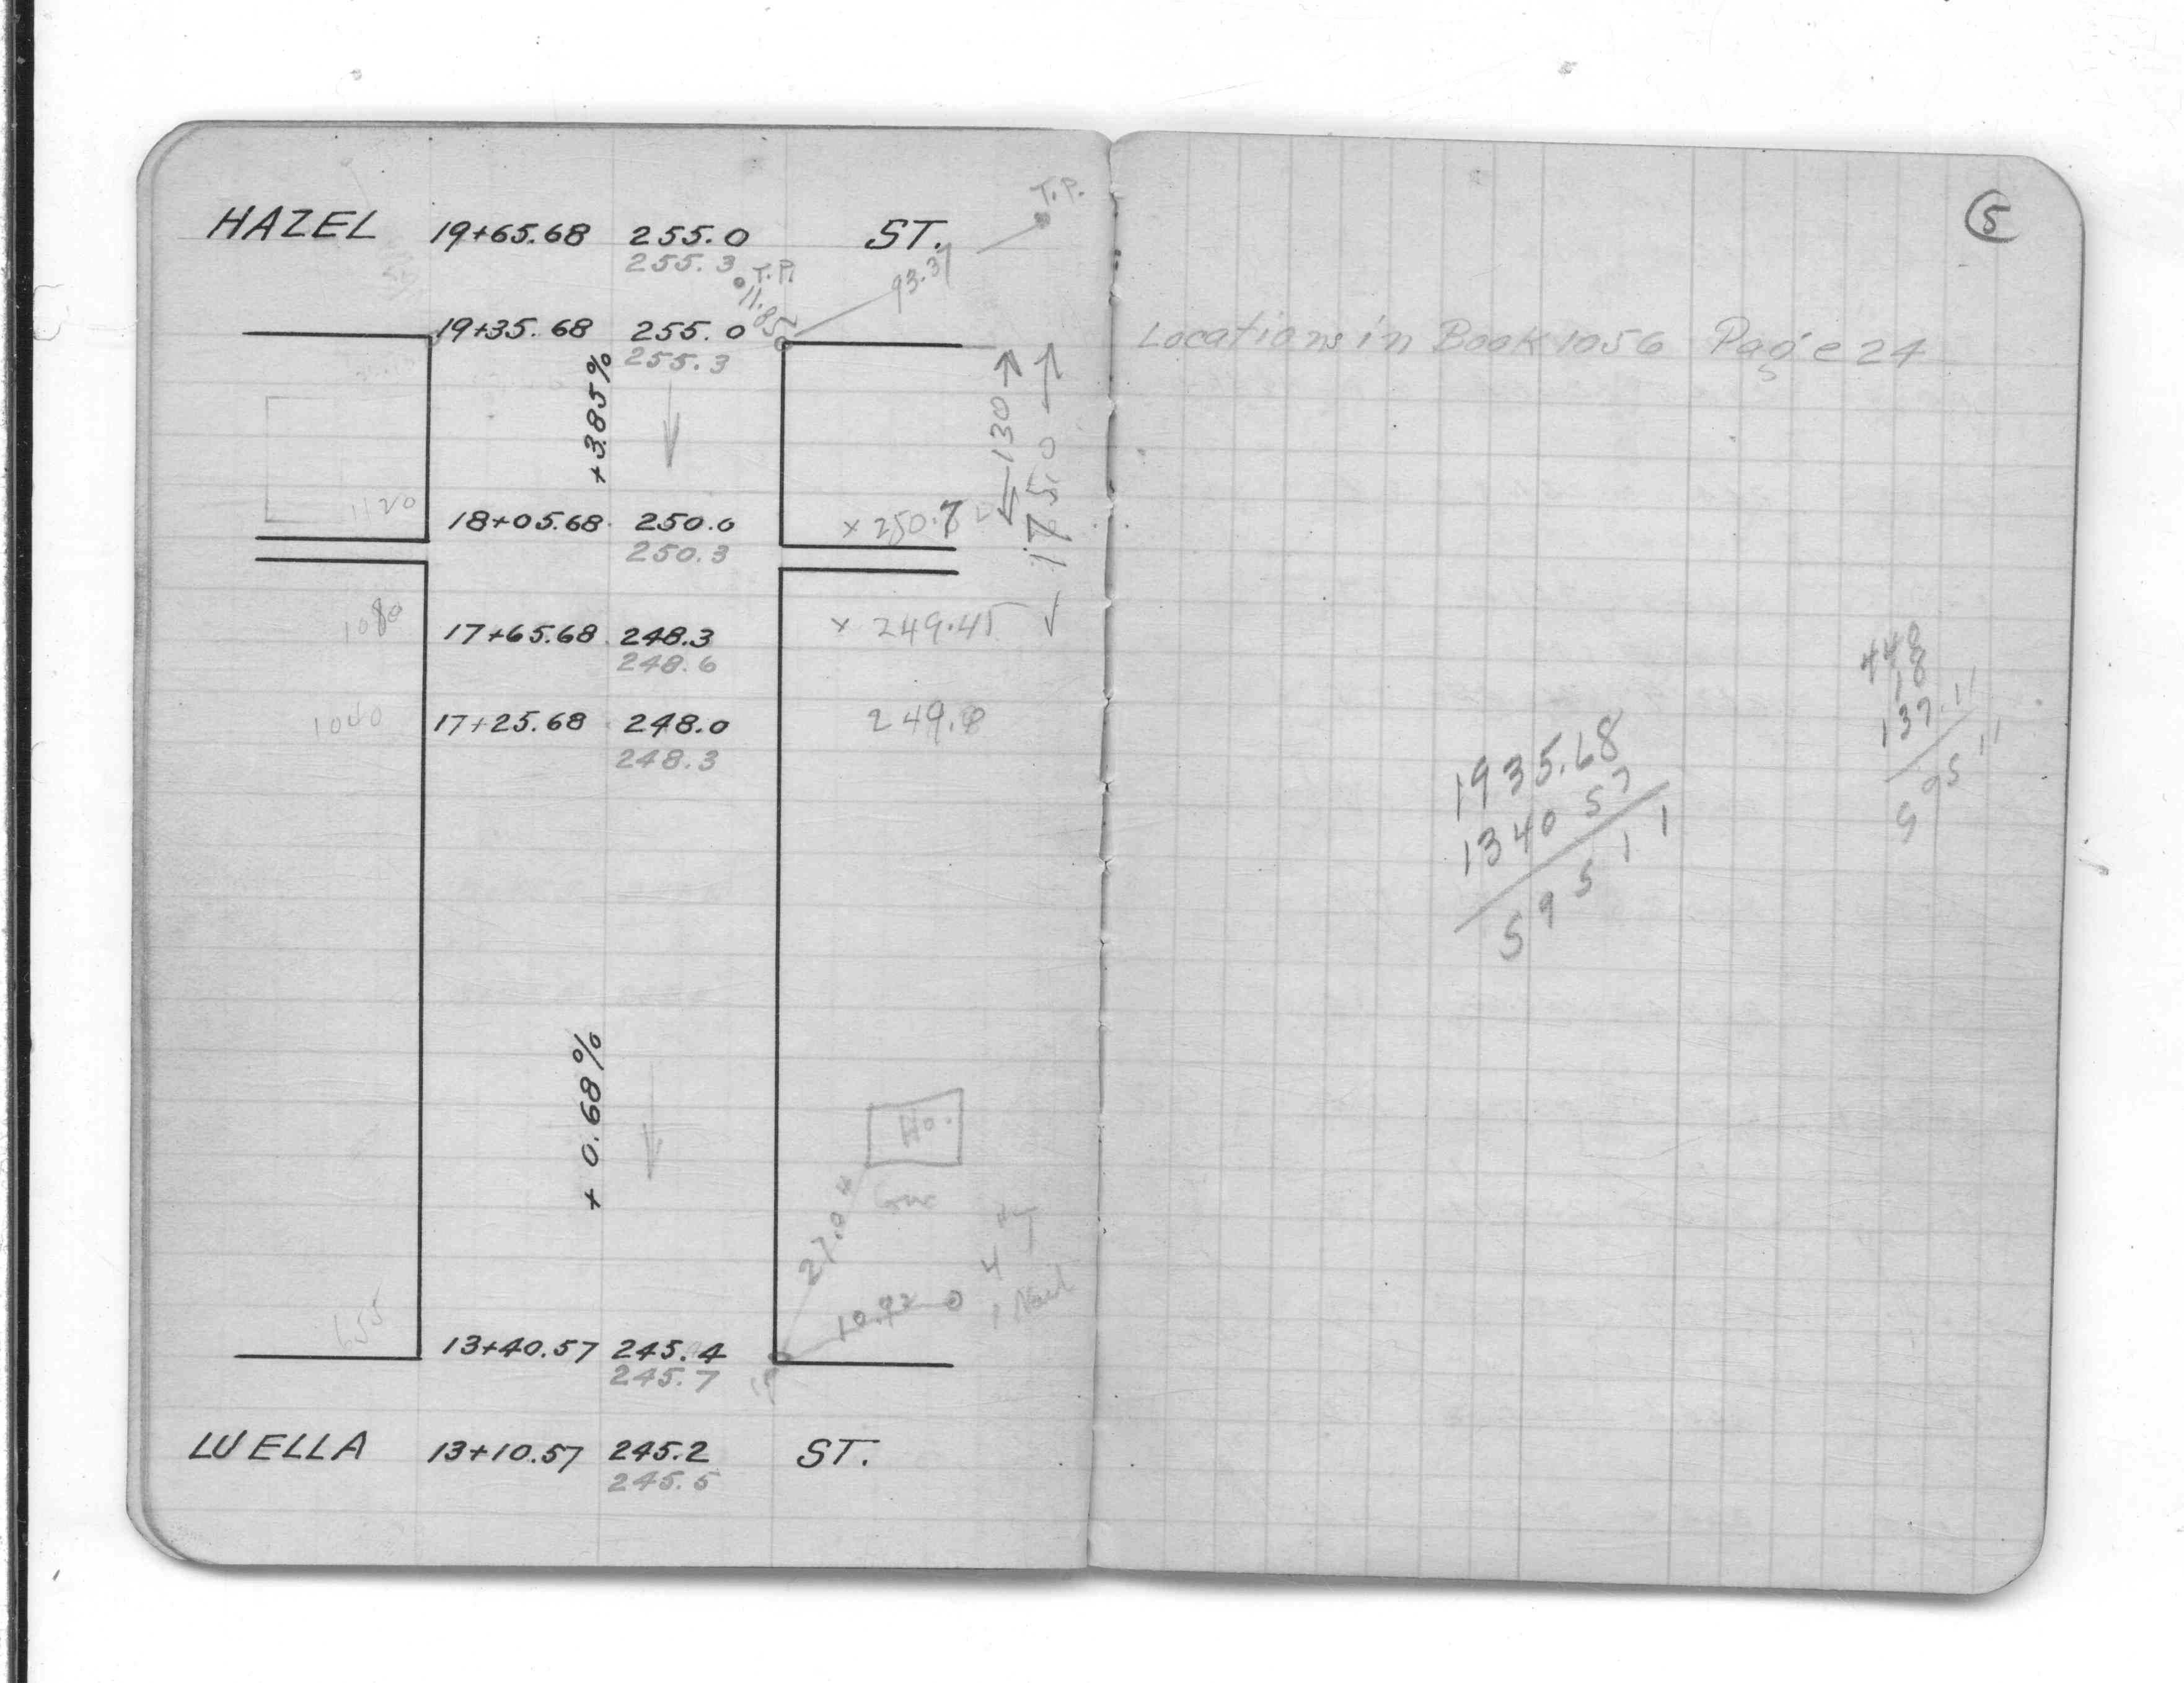 HAZEL 19+65.68 255.0 ST.
255.3
T.P.
T.P.
11.85
93.37
19+35.68 255.0
255.3
+3.85%
130
175.0
1120
18+05.68 250.0 x 250.7
250.3
1080
17+65.68 248.3 x 249.45
248.6
1040
17+25.68 248.0 249.8
248.3
+0.68%
Ho.
27.0
10.92
Nail
655
13+40.57 245.4
245.7
LUELLA 13+10.57 245.2 ST.
245.5
5
Locations in Book 1056 Page 24
448
18
137.11
595 11
1935.68
1340 57
595 11